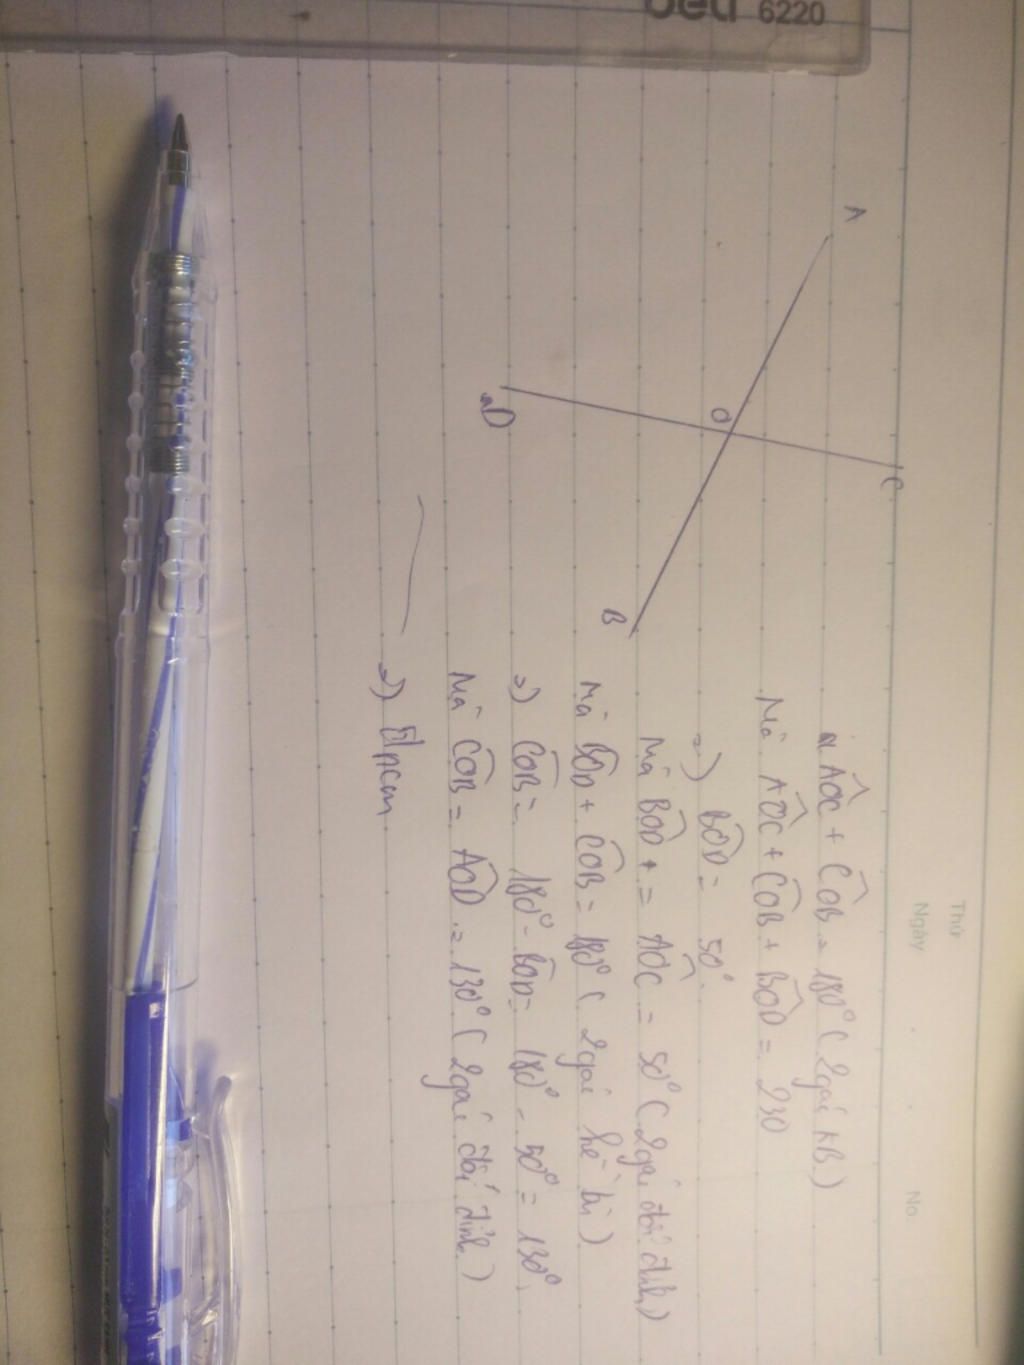 deli 6220
Thứ
Ngày
No
A
C
O
D
B
a. AOC + COB = 180° ( 2 góc KB )
Mà AOC + COB + BOD = 230
=) BOD = 50°.
Mà BOD = AOC = 50° ( 2 góc đối đỉnh )
Mà BOD + COB = 180° ( 2 góc kề bù )
=) COB = 180° - BOD = 180° - 50° = 130°.
Mà COB = AOD = 130° ( 2 góc đối đỉnh )
=) Đpcm